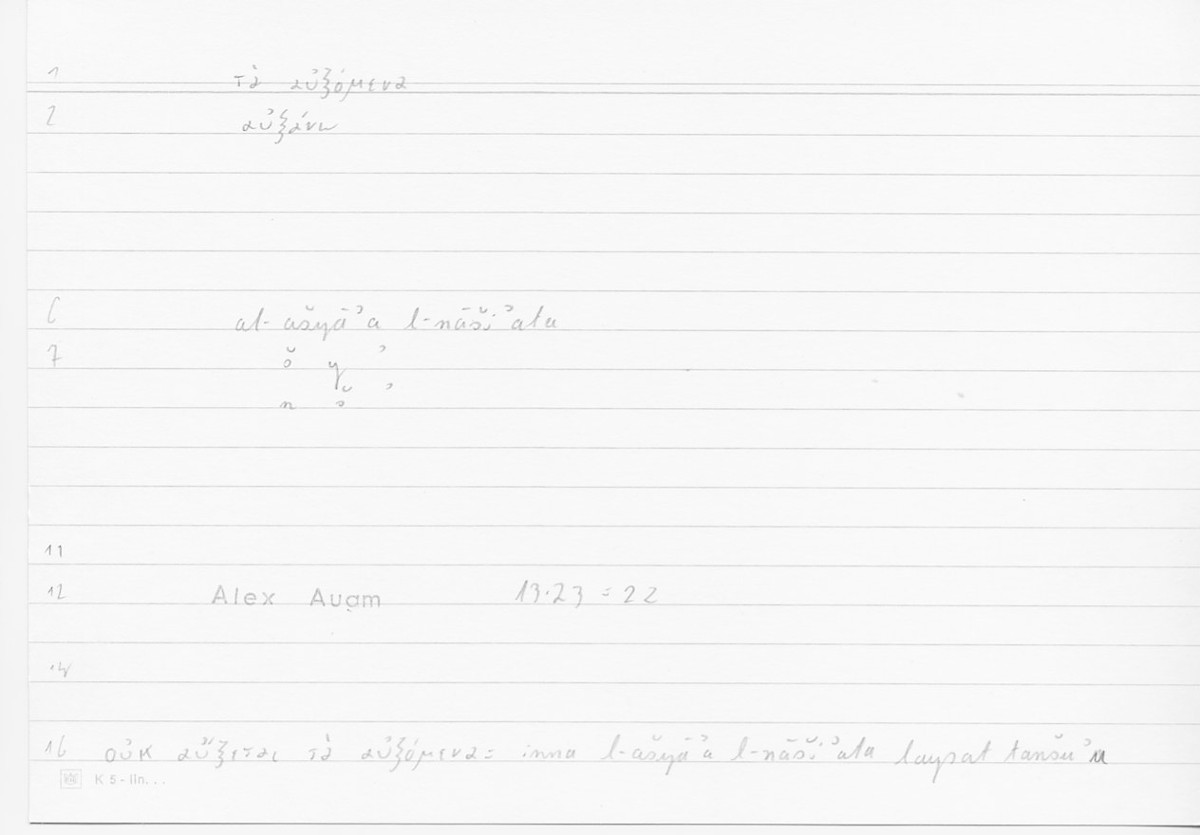 1 τὰ αὐξόμενα
2 αὐξάνω
6 al-ašyāʾa l-nāšiʾata
7 š y ʾ
n š ʾ
11
12 Alex Auạm 13.23 = 22
14
16 οὐκ αὔξεται τὰ αὐξόμενα = inna l-ašyāʾa l-nāšiʾata laysat tanšuʾu
K 5 - lln. . .